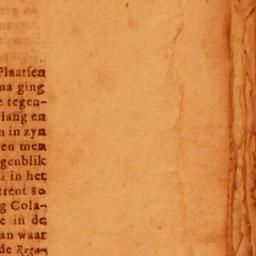 Plaatsen
na ging
e tegen-
lang en
n in zyn
en men
genblik
in het
trent so
g Cola-
e in de
an waar
de Regan-